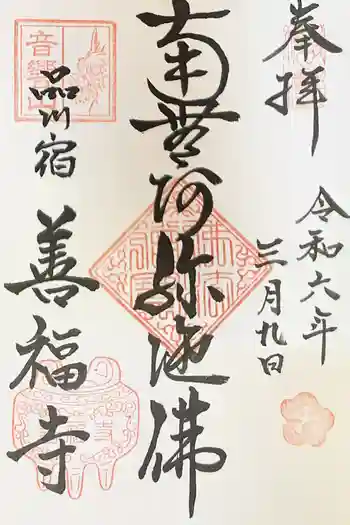 奉拝
令和六年
三月九日
南無阿弥陀佛
音響山
品川宿
善福寺